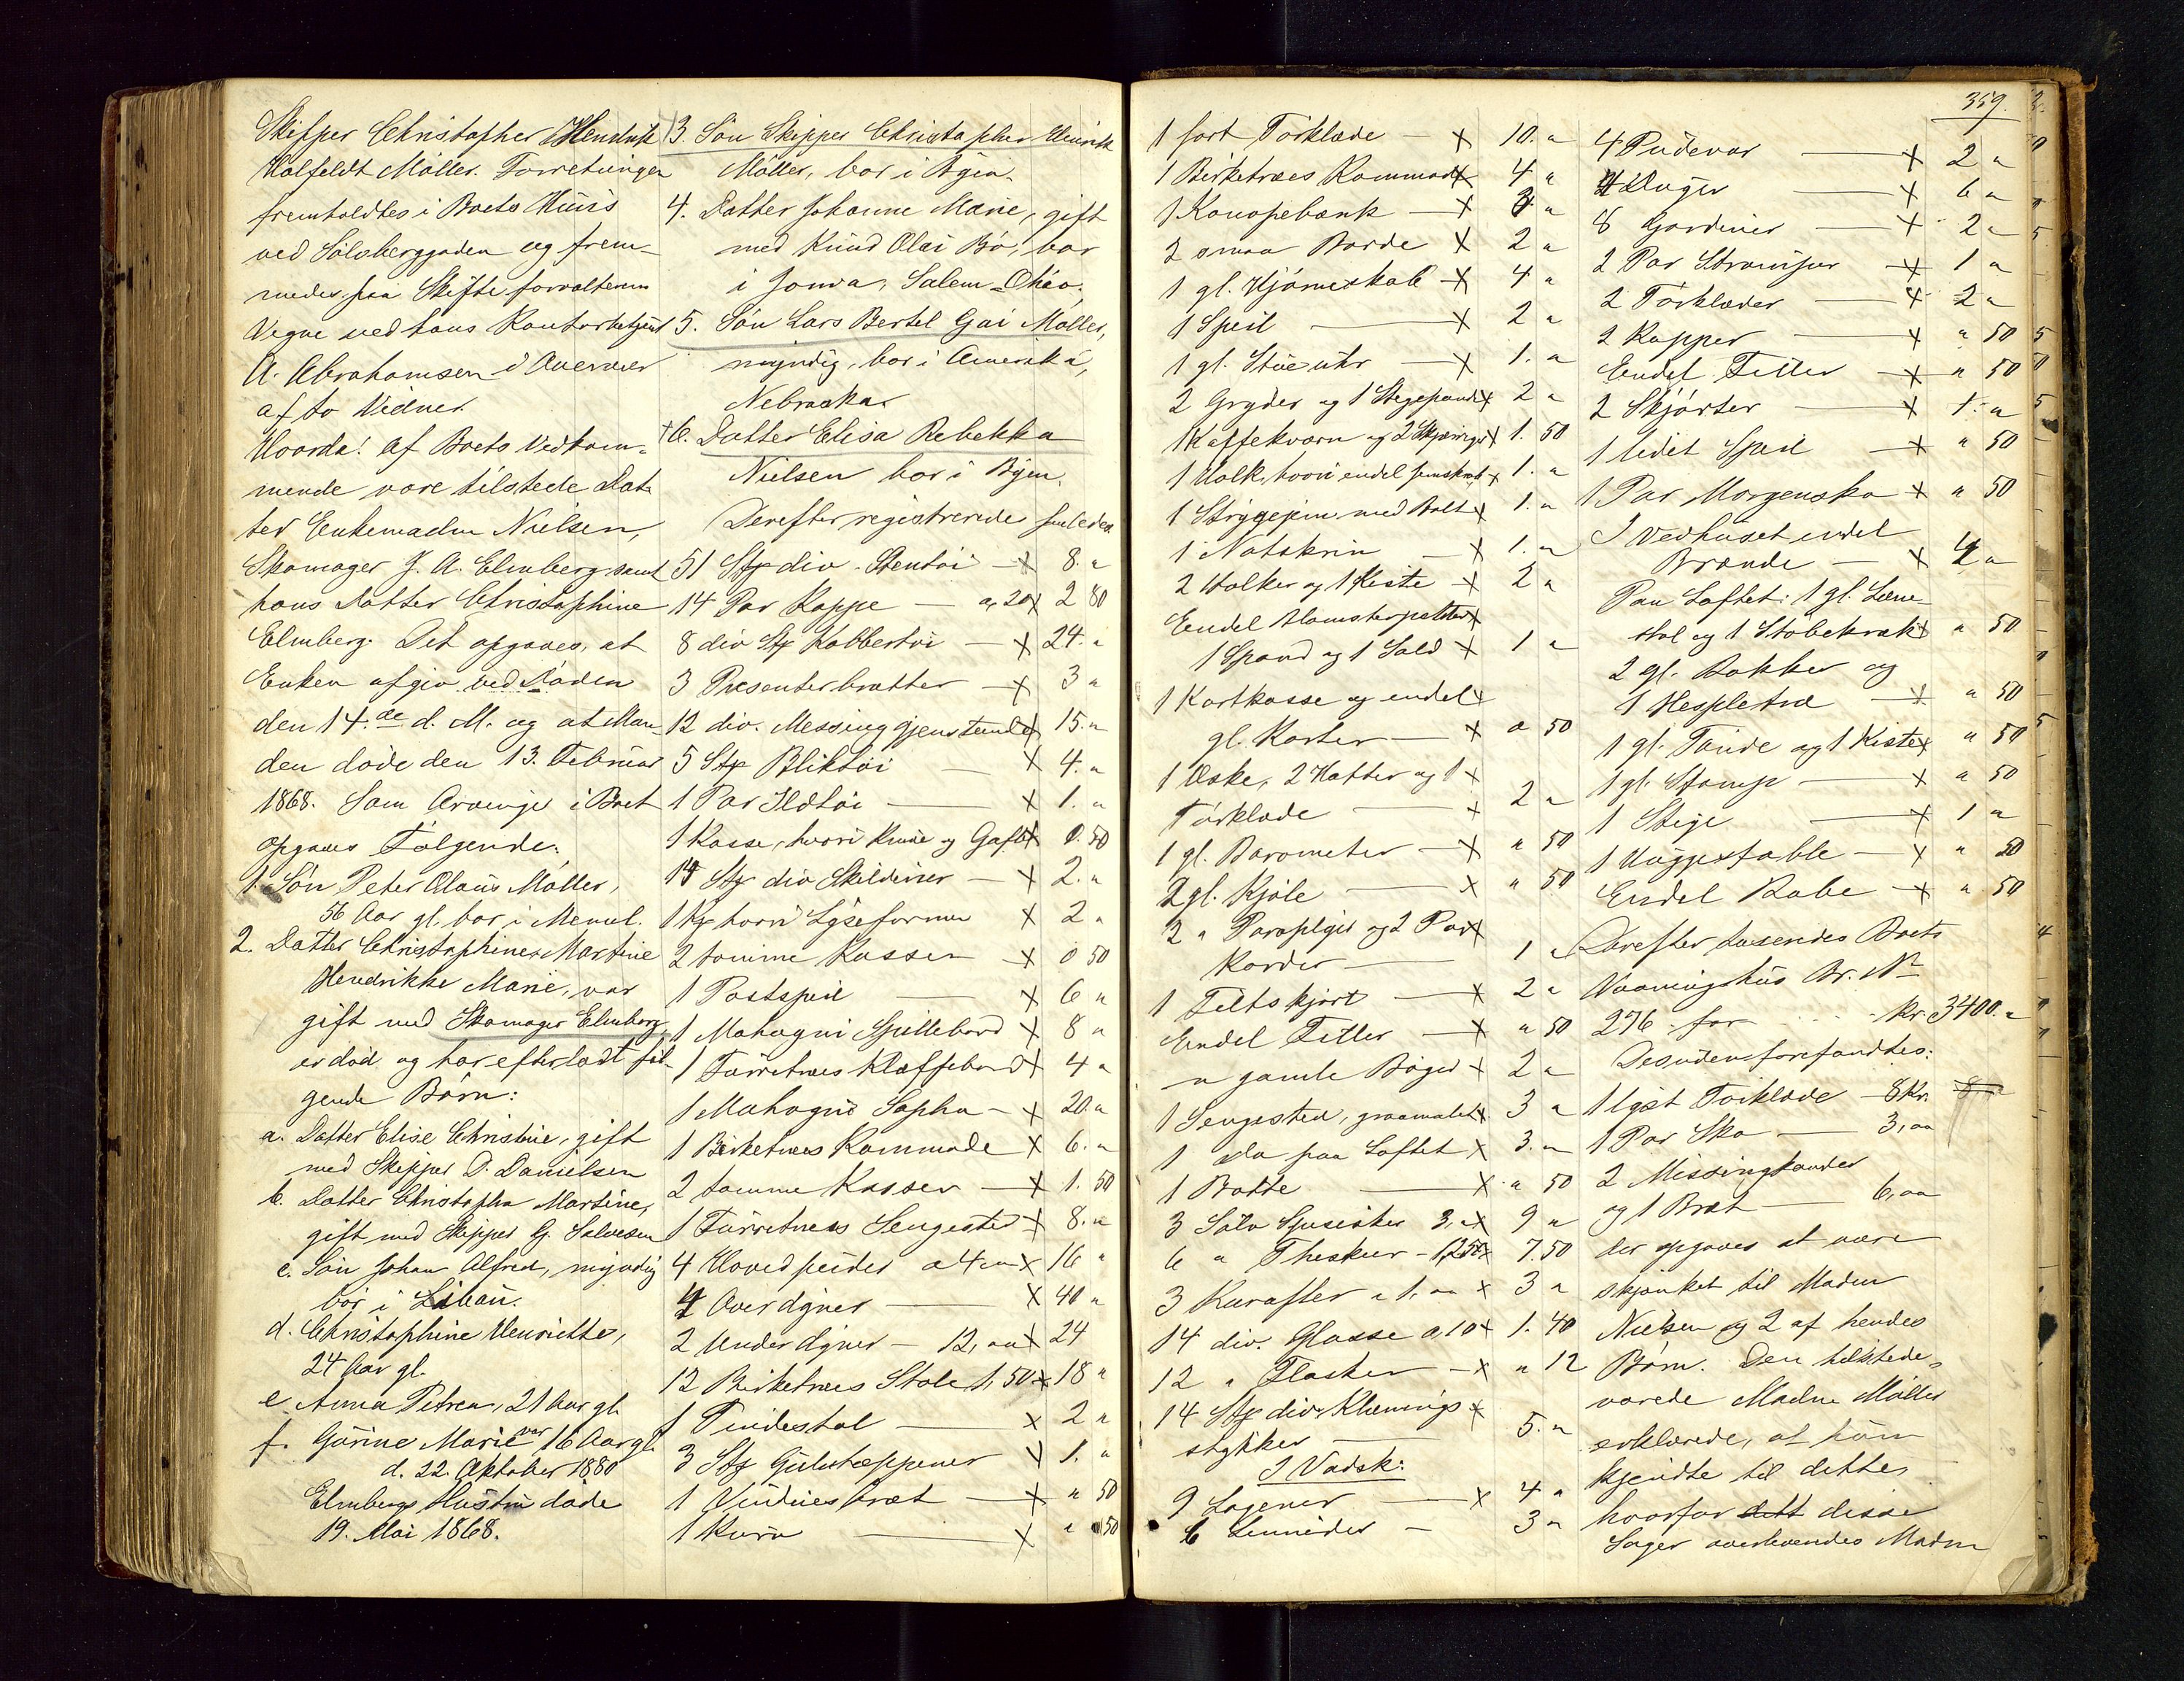 Skipper Christopher Hendrik
Holfeldt Möller. Forretningen
fremholdtes i Boets Huus
ved Sölsberggaden og frem-
medes paa Skifteforvalterens
Vegne ved hans Kontorbetjent
A. Abrahamsen i Overvær
af to Vidner.
Hvorda! af Boets Vedkom-
mende vare tilstede Dat-
ter Enkemadm Nielsen,
Skomager J. A. Elmberg samt
hans Datter Christophine
Elmberg. Det opgaves, at
Enken afgik ved Döden
den 14.de d. M. og at Man-
den döde den 13. Februar
1868. Som Arvinge i Boet
opgaves Fölgende:
1. Sön Peter Olaus Möller,
56 Aar gl. bor i Memel.
2. Datter Christophine Martine
Hendrikke Marie, var
gift med Skomager Elmberg,
er död og har efterladt föl-
gende Börn:
a. Datter Elise Christine, gift
med Skipper D. Danielsen
b. Datter Christopha Martine,
gift med Skipper G. Salvesen
c. Sön Johan Alfred, myndig
bor i Libau.
d. Christophine Henriette,
24 Aar gl.
e Anna Petrea, 21 Aar gl.
f. Gurine Marie var 16 Aar gl.
d. 22. Oktober 1880
Elmbergs Hustru döde
19. Mai 1868.
3. Sön Skipper Christopher Henrik
Möller, bor i Byen.
4. Datter Johanne Marie, gift
med Knud Olai Bö, bor
i Jowa, Salem-Ohio.
5. Sön Lars Bertel Gai Möller,
myndig, bor i Amerika,
Nebraska.
+ 6. Datter Elisa Rebekka
Nielsen bor i Byen.
Derefter registrerede saaledes
51 Stk div. Stentöi — x 8. "
14 Par Koppe — a, 20 x 2 80
8 div Stk Kobbertöi — x 24. "
3 Presenterbrætter — x 3 "
12 div. Messinggjenstande x 15. "
5 Stk Bliktöi — x 4. "
1 Par Ildtöi — x 1. "
1 Kasse, hvori Knive og Gafler x 0. 50
15 Stk div Skilderier — x 2. "
1 Kk hvori Lyseformer x 2 "
2 tomme Kasser x 0 50
1 Postspeil — x 6 "
1 Mahogni Spillebord x 8 "
1 Furretræes Klaffebord x 4 "
1 Mahogni Sopha — x 20. "
1 Birketræes Kommode x 6. "
2 tomme Kasser — x 1. 50
1 Furretræes Sengested x 8. "
4 Hovedpuder a 4 " x 16 "
4 Overdyner — x 40 "
2 Underdyner — 12, " x 24
12 Birketræes Stole 1, 50 x 18 "
1 Pindestol — x 2 "
3 Stk Gulvtæppener x 1. "
1 Vindues bræt — x " 50
1 Kurv — x " 50
359.
1 sort Törklæde — x 10. "
1 Birketræes Kommode x 4 "
1 Kanapebænk — x 3 "
2 smaa Borde x 2 "
1 gl. Hjörneskab x 4 "
1 Speil — x 2 "
1 gl. Stueuhr — x 1. "
2 Gryder og 1 Stegepande x 2 "
1 Kaffekværn og 2 x 1. 50
1 Holk, hvori endel x 1. "
1 Strygejern med Bolt x 1. "
1 Natskrin — x 1. "
2 Holker og 1 Kiste x 2 "
Endel Blomsterpotter x
1 Spand og 1 Sold x 1 "
1 Kortkasse og endel x
gl. Korter — x " 50
1 Æske, 2 Hatter og 1 x
Törklæde — x 2 "
1 gl. Barometer — x " 50
2 gl. Kjole — x " 50
2 " Paraplyer og 2 Par x
Karder — 1 "
1 Filtskjört — x 2 "
Endel Filler — x " 50
" gamle Böger x 2 "
1 Sengested, graamalet x 3 "
1 do paa Loftet x 3. "
1 Bötte — x " 50
3 Sölv Spiseskeer 3, " x 9 "
6 " Theskeer - 1,25 x 7.50
3 Karafler a 1, " x 3 "
14 div. Glasse 0,10 x 1. 40
12 " Flasker — x " 12
14 Stk div. Klædnings x
stykker — 5. "
I Vadsk:
9 Lagener — x 4 "
6 Linneder — 3 "
4 Pudevar — x 2 "
4 Duger — x 6 "
8 Gardiner — x 2 "
2 Par Strömper — x 1 "
2 Törklæder — x 2 "
2 Kapper — x " 50
Endel Filler — x " 50
2 Skjörter — x 1. "
1 lidet Speil — x " 50
1 Par Morgensko x " 50
I Vedhuset endel
Brænde — x 4 "
Paa Loftet: 1 gl. Læne-
stol og 1 Stöbekrak x " 50
2 gl. Rokker og
1 Hespletræ — x " 50
1 gl. Tönde og 1 Kiste x " 50
1 gl. Stamp — x " 50
1 Stige — x 1 "
1 Huggestabbe — x " 50
Endel Kabe — x " 50
Derefter taxeredes Boets
Vaaningshus Br. No
276 for . . . . Kr. 3400. "
Desuden forefandtes:
1 lyst Törklæde — 8 Kr. 8 "
1 Par Sko — 3, "
2 Missingkander
og 1 Bræt — 6, "
der opgaves at være
skjænket til Madm
Nielsen og 2 af hendes
Börn. Den tilstede-
værede Madm Möller
erklærede, at hun
kjendte til dette,
hvorfor dett disse
Sager overleveredes Madm